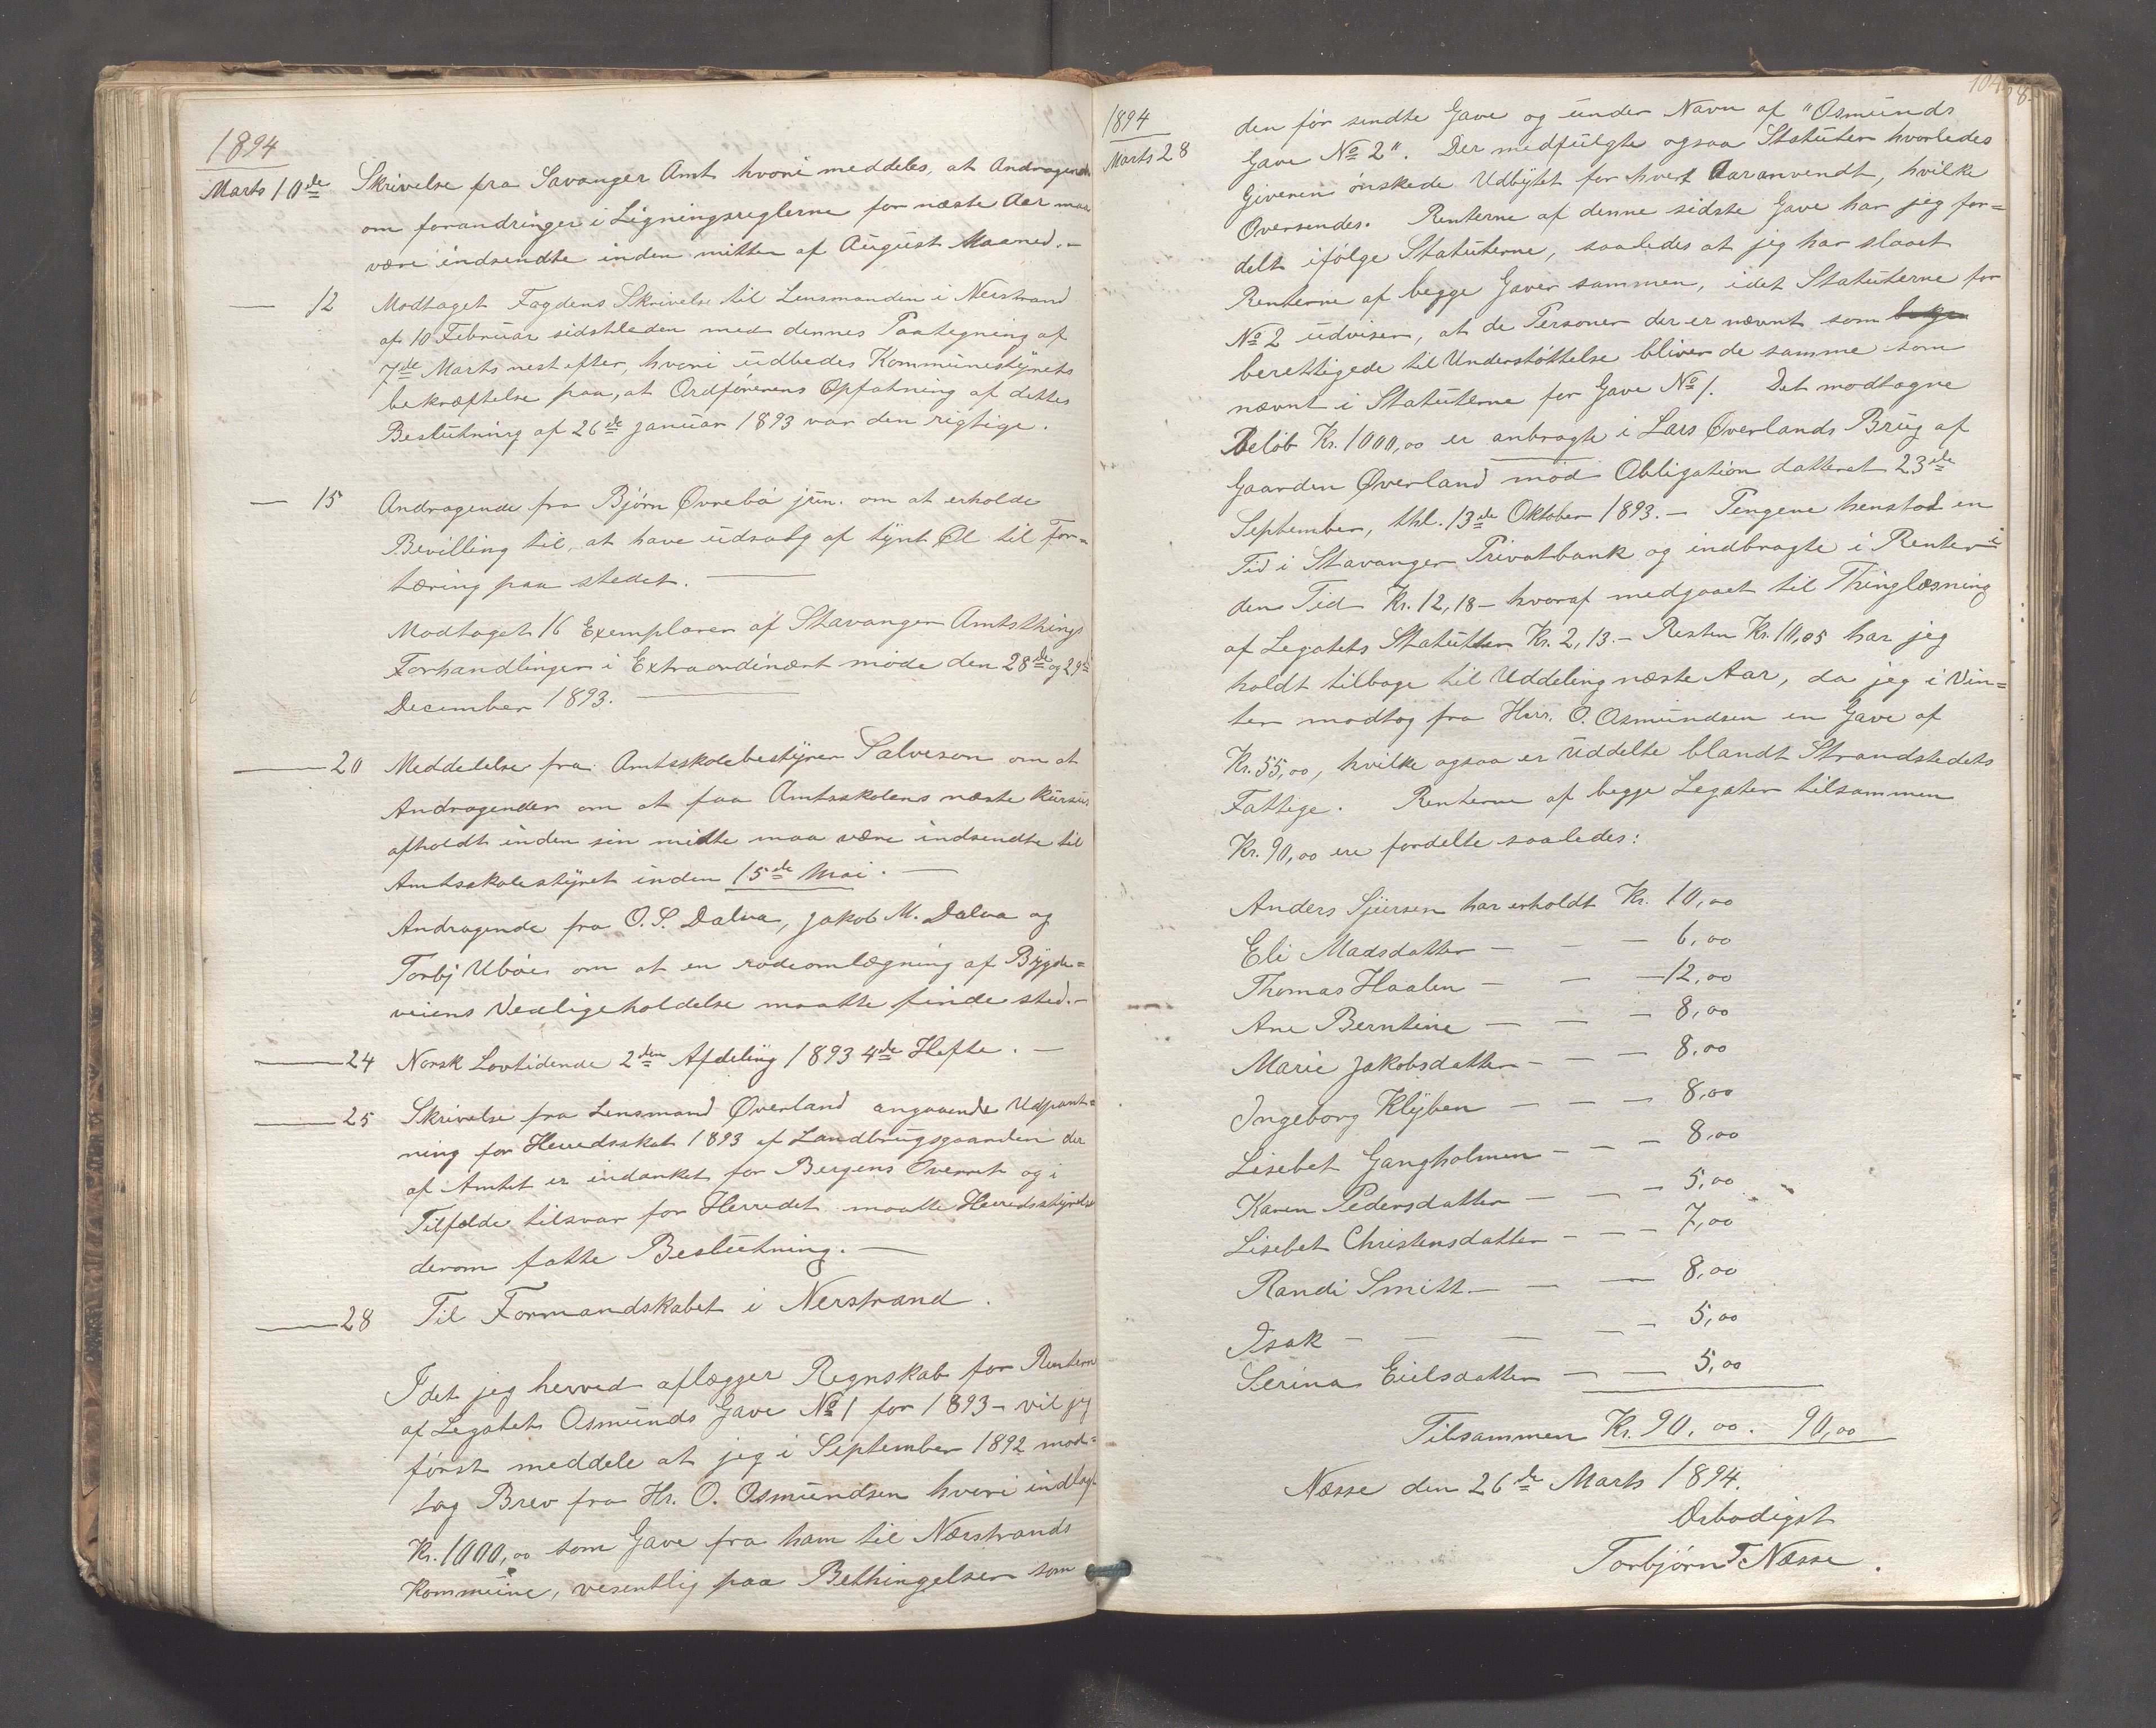 1894
Marts 10de Skrivelse fra Savanger Amt hvori meddeles, at Andragende
om forandringer i Ligningsreglerne for næste Aar maa
være indsendte inden mitten af August Maaned.-
— 12 Modtaget Fogdens Skrivelse til Lensmanden i Neerstrand
af 10 Februar sidstleden med dennes Paategning af
7de Marts nest efter, hvori udbedes Kommunestyrets
bekræftelse paa, at Ordførerens Opfatning af dettes
Beslutning af 26de Januar 1893 var den rigtige.
— 15 Andragende fra Bjørn Øvrebø jun. om at erholde
Bevilling til, at have udsalg af tynt Øl til For=
tæring paa stedet. —
Modtaget 16 Exemplarer af Stavanger Amtsthings
Forhandlinger i Extraordinært møde den 28de og 29de
December 1893. —
— 20 Meddelelse fra Amtsskolebestyrer Salveson om at
Andragender om at faa Amtsskolens næste Kursus
afholdt inden sin midte maa være indsendte til
Amtsskolestyret inden 15de Mai. —
Andragende fra O. S. Dalva, Jakob M. Dalva og
Torbj Ubøe om at en rodeomlægning af Bygde=
veiens Vedligeholdelse maatte finde sted.-
— 24 Norsk Lovtidende 2den Afdeling 1893 4de Hefte. —
— 25 Skrivelse fra Lensmand Øverland angaaende Udpant=
ning for Herredsskat 1893 af Landbrugsgaarden der
af Amtet er indanket for Bergens Overret og i
Tilfælde tilsvar for Herredet maatte Herredsstyrelse
derom fatte Beslutning. —
— 28 Til Formandskabet i Nerstrand.
Idet jeg herved aflægger Regnskab for Renterne
af Legatet Osmunds Gave No 1 for 1893 - vil jeg
først meddele at jeg i September 1892 mod=
tog Brev fra Hr. O. Osmundsen hvori indlagt
Kr. 1000,00 som Gave fra ham til Nærstrands
Kommune, vesentlig paa Bethingelser som
1894
Marts 28
den før sendte Gave og under Navn af "Osmunds
Gave No 2". Der medfulgte ogsaa Statuter hvorledes
Giveren ønskede Udbytet for hvert Aar anvendt, hvilke
Oversendes. Renterne af denne sidste Gave har jeg for=
delt ifølge Statuterne, saaledes at jeg har slaaet
Renterne af begge Gaver sammen, idet Statuterne for
No 2 udviser, at de Personer der er nævnt som
berettigede til Understøttelse bliver de samme som
nævnt i Statuterne for Gave No 1. Det modtagne
Beløb Kr. 1000,00 er anbragte i Lars Øverlands Brug af
Gaarden Øverland mod Obligation datteret 23de
September, thl. 13de Oktober 1893. - Pengene henstod en
Tid i Stavanger Privatbank og indbragte i Renter i
den Tid Kr. 12,18 - hvoraf medgaaet til Thinglæsning
af Legatets Statutter Kr. 2,13. - Resten Kr. 10,05 har jeg
holdt tilbage til Uddeling næste Aar, da jeg i Vin=
ter modtog fra Herr. O. Osmundsen en Gave af
Kr. 55,00, hvilke ogsaa er Uddelte blandt Strandstedets
Fattige. Renterne af begge Legater tilsammen
Kr. 90,00 ere fordelte saaledes:
Anders Sjursen har erholdt Kr. 10,00
Eli Madsdatter — — — 6,00
Thomas Haalen — — — 12,00
Ane Berntine — — — 8,00
Marie Jakobsdatter — — — 8,00
Ingeborg Klyben — — — 8,00
Lisebet Gangholmen — — — 8,00
Karen Pedersdatter — — — 5,00
Lisebet Christensdatter — — — 7,00
Randi Smitt — — — 8,00
Isak — — — — 5,00
Serina Eielsdatter — — 5,00
Tilsammen Kr. 90,00. 90,00
Næsse den 26de Marts 1894.
Ærbødigst
Torbjørn T. Næsse.